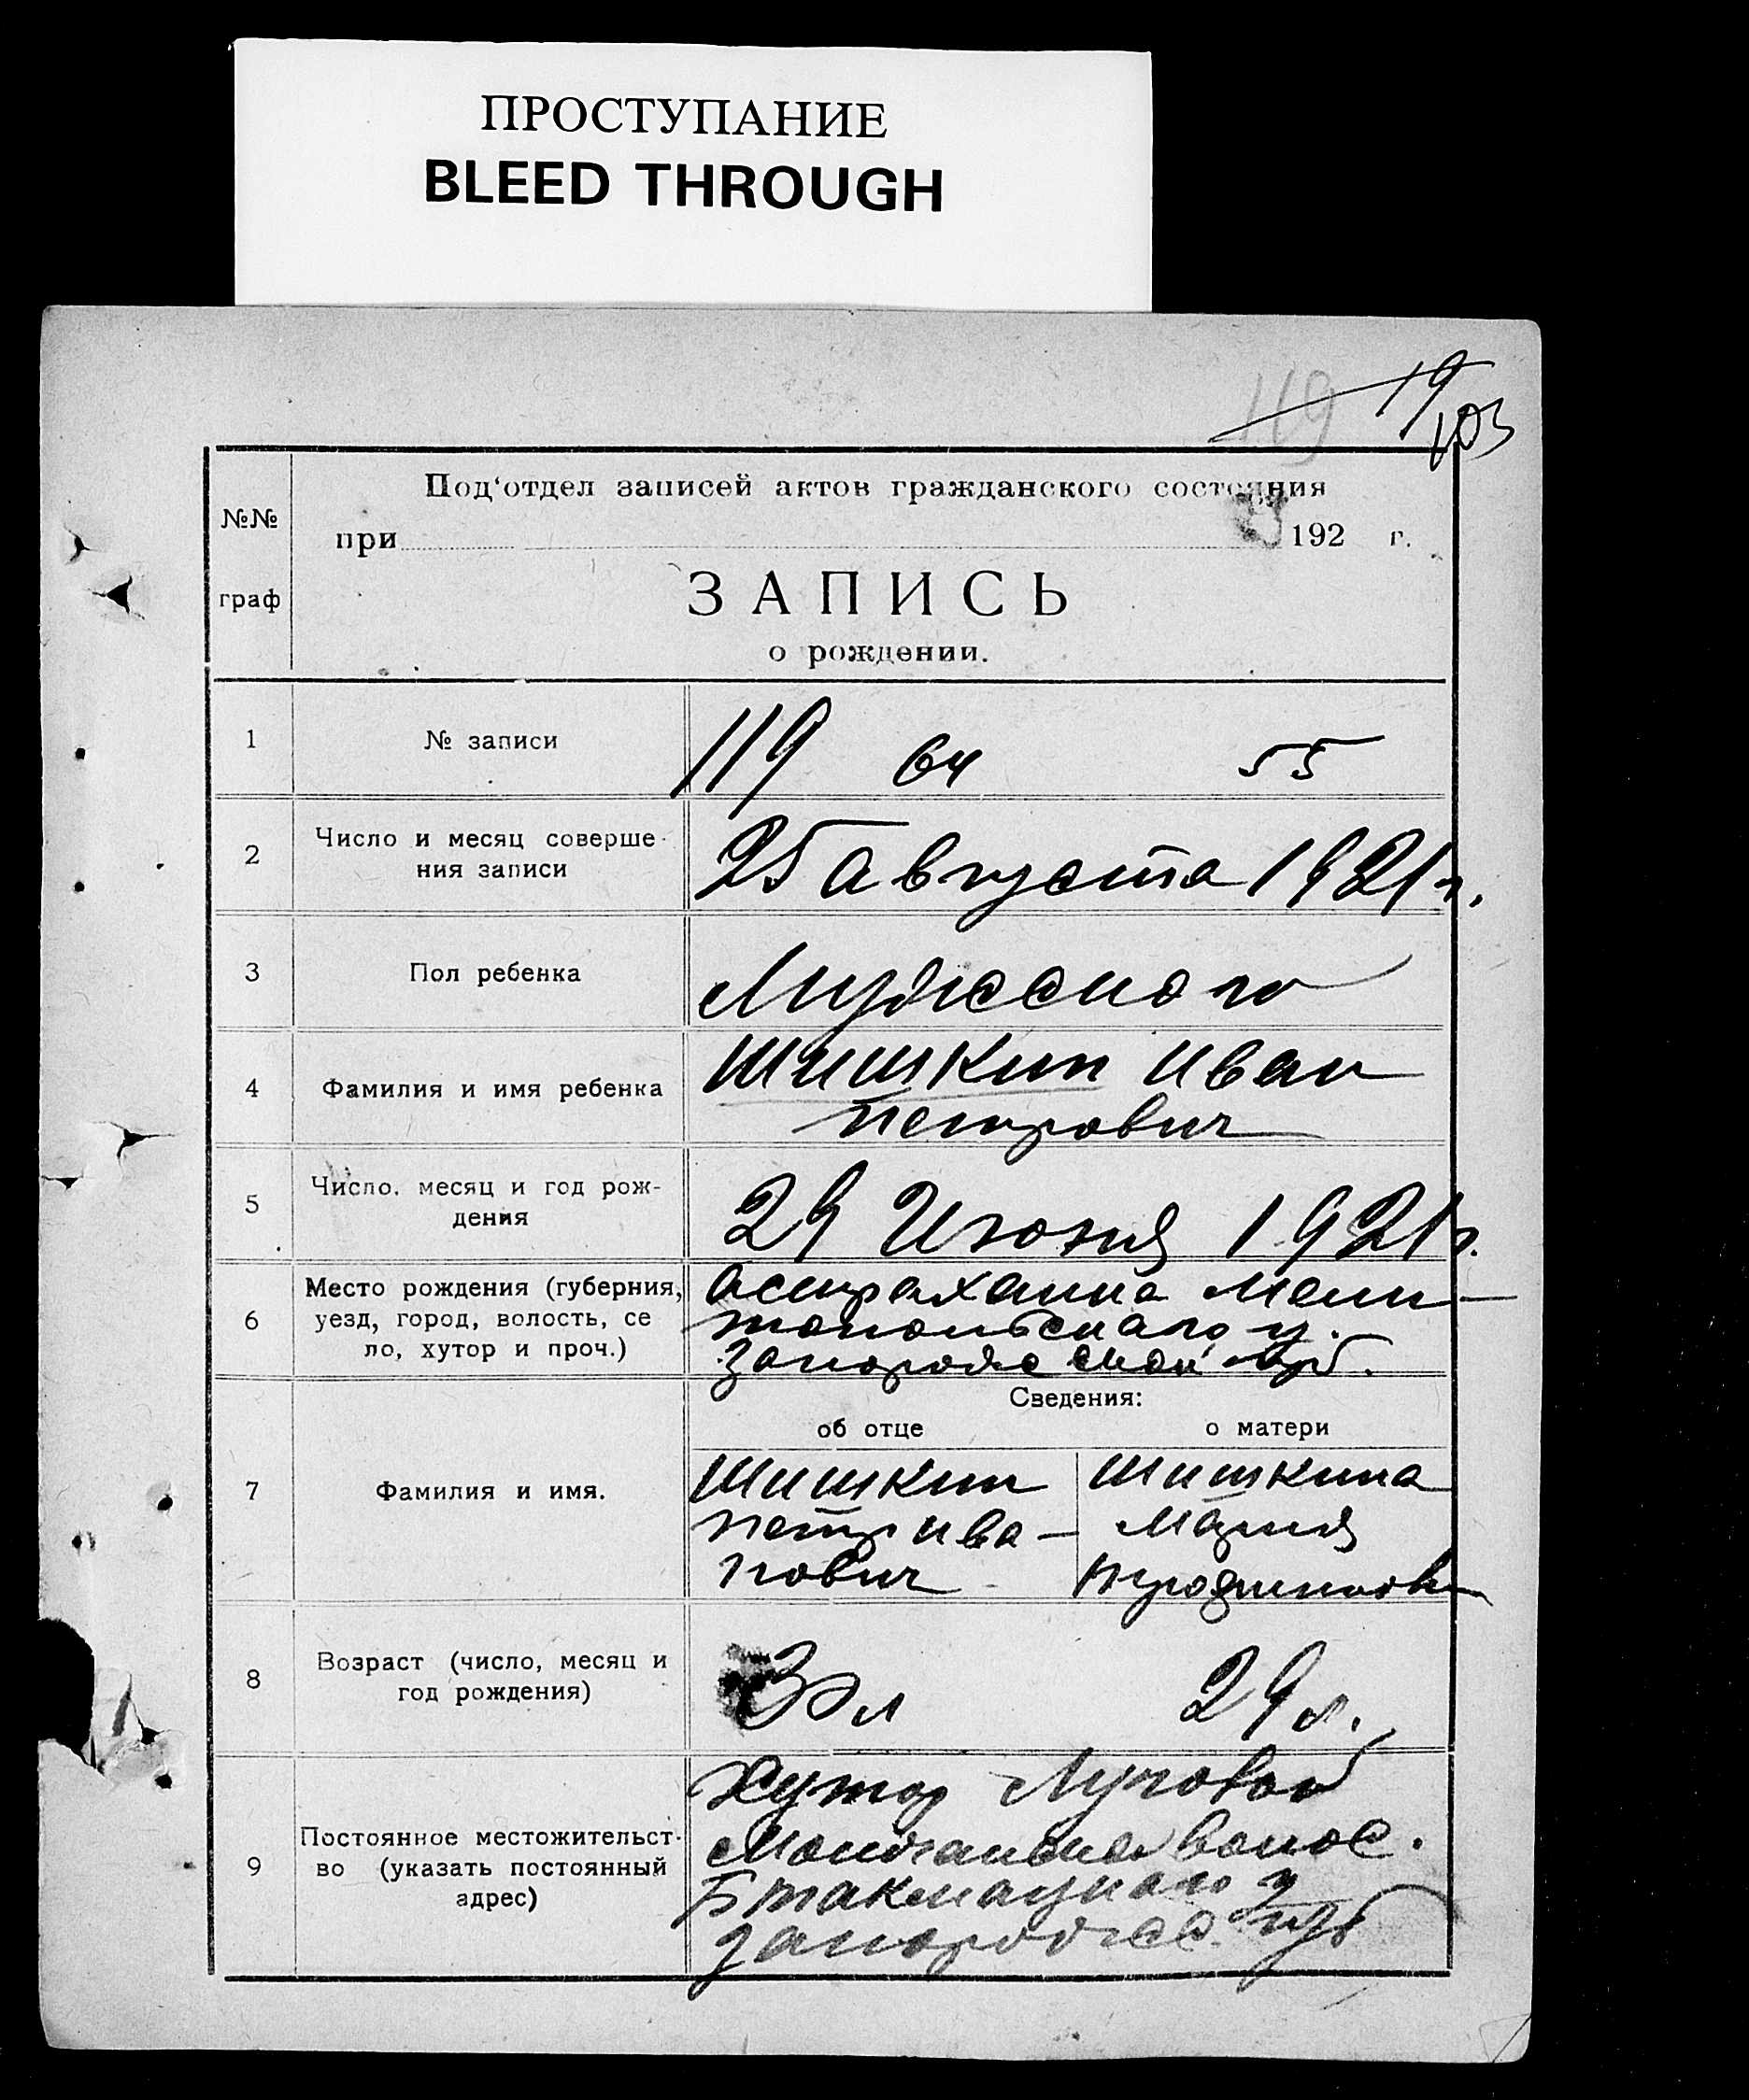 ПРОСТУПАНИЕ
BLEED THROUGH
119 19
103
№№
граф
Под'отдел записей актов гражданского состояния
при 192 г.
ЗАПИСЬ
о рождении.
1 № записи 119 64 55
2 Число и месяц соверше-
ния записи
25 августа 1921 г.
3 Пол ребенка Мужескаго
4 Фамилия и имя ребенка
Шишкин Иван
Петрович
5 Число, месяц и год рож-
дения
29 Июня 1921 г.
6 Место рождения (губерния,
уезд, город, волость, се
ло, хутор и проч.)
Астраханка Мели-
топольскаго у.
Запорожской губ.
Сведения:
об отце о матери
7 Фамилия и имя.
Шишкин
Петр Ива-
нович
Шишкина
Мария
8 Возраст (число, месяц и
год рождения)
30 л 29 л.
9 Постоянное местожительст-
во (указать постоянный
адрес)
Хутор Луговой
волос.
Б Такмацкаго у
Запорожс. губ